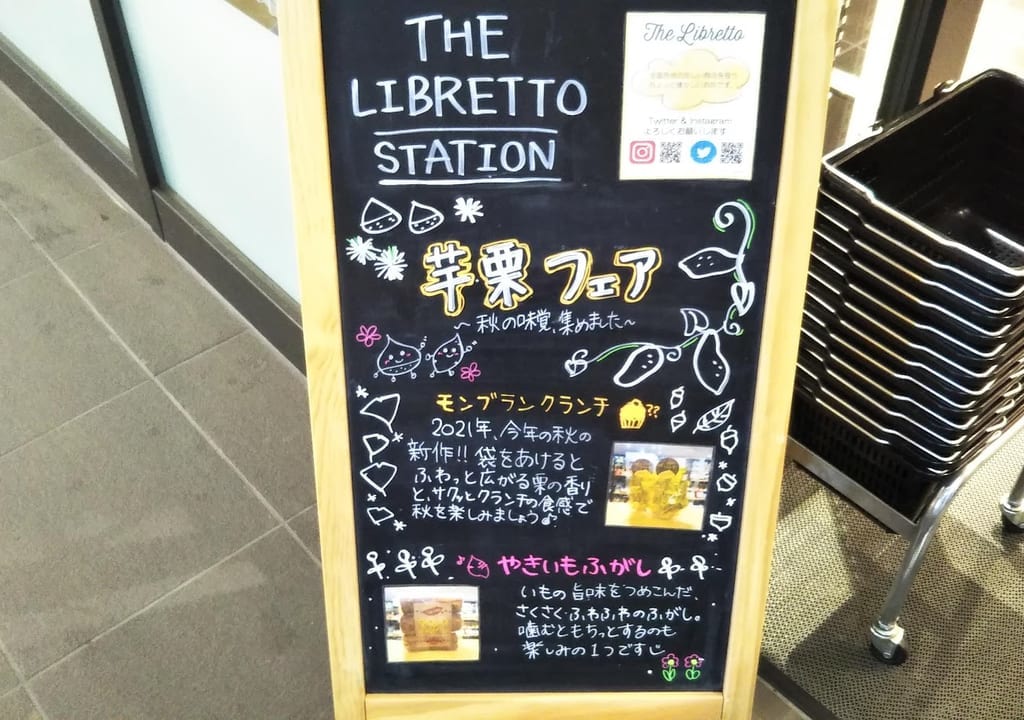 THE
LIBRETTO
STATION
The Libretto
Twitter & Instagram
よろしくお願いします
芋栗フェア
～秋の味覚、集めました～
モンブランクランチ
??
2021年、今年の秋の
新作!! 袋をあけると
ふわっと広がる栗の香り
と、サクッとクランチの食感で
秋を楽しみましょう♪
♪やきいもふがし
いもの旨味をつめこんだ、
さくさく・ふわふわのふがし。
噛むともちっとするのも
楽しみの1つです